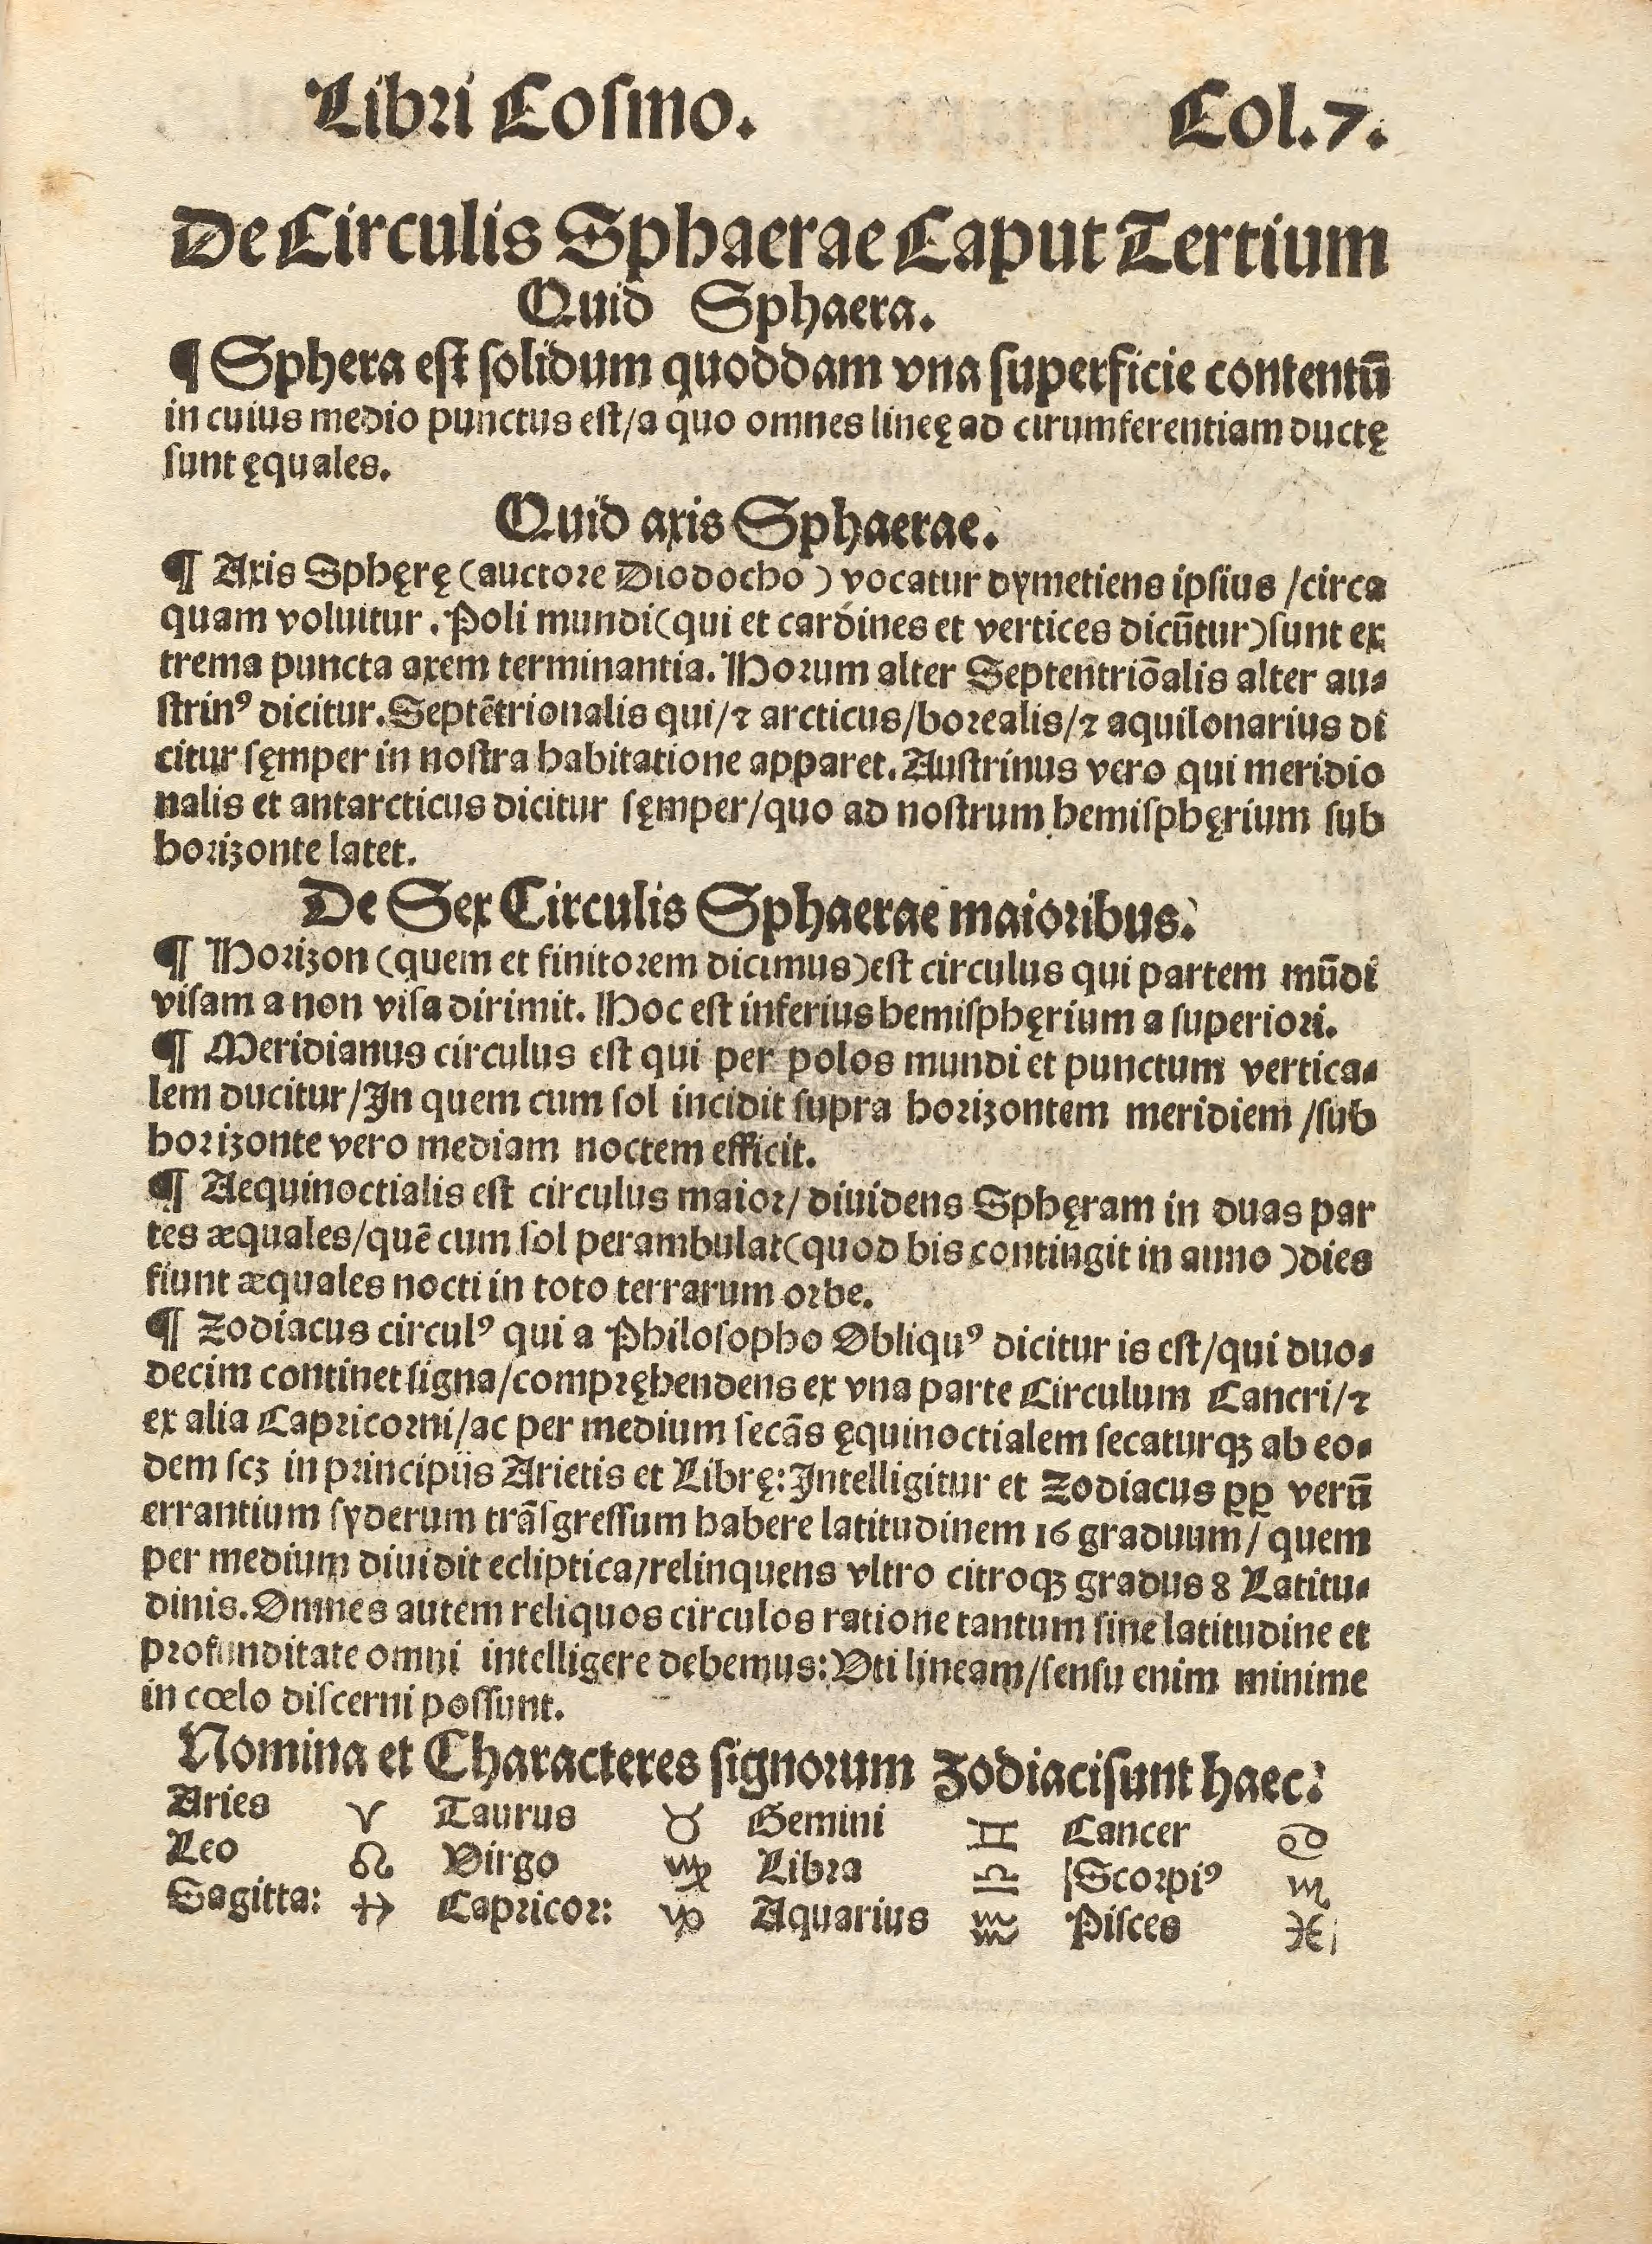 Libri Cosmo. Col. 7.
De Circulis Sphaerae Caput Tertium
Quid Sphaera.
¶ Sphera est solidum quoddam vna superficie contentū
in cuius medio punctus est/a quo omnes lineę ad cirumferentiam ductę
sunt ęquales.
Quid axis Sphaerae.
¶ Axis Sphęrę (auctore Diodocho) vocatur dymetiens ipsius /circa
quam voluitur. Poli mundi(qui et cardines et vertices dicūtur)sunt ex
trema puncta axem terminantia. Horum alter Septentriōalis alter au⸗
strinꝰ dicitur. Septētrionalis qui/⁊ arcticus/borealis/⁊ aquilonarius di
citur sęmper in nostra habitatione apparet. Austrinus vero qui meridio
nalis et antarcticus dicitur sęmper/quo ad nostrum hemisphęrium sub
horizonte latet.
De Sex Circulis Sphaerae maioribus.
¶ Horizon (quem et finitorem dicimus)est circulus qui partem mūdi
visam a non visa dirimit. Hoc est inferius hemisphęrium a superiori.
¶ Meridianus circulus est qui per polos mundi et punctum vertica⸗
lem ducitur/In quem cum sol incidit supra horizontem meridiem /sub
horizonte vero mediam noctem efficit.
¶ Aequinoctialis est circulus maior/ diuidens Sphęram in duas par
tes æquales/quē cum sol perambulat(quod bis contingit in anno )dies
fiunt æquales nocti in toto terrarum orbe.
¶ Zodiacus circulꝰ qui a Philosopho Obliquꝰ dicitur is est/qui duo⸗
decim continet signa/compręhendens ex vna parte Circulum Cancri/⁊
ex alia Capricorni/ac per medium secās ęquinoctialem secaturqꝫ ab eo⸗
dem scꝫ in principiis Arietis et Librę: Intelligitur et Zodiacus ꝓꝓ verū
errantium syderum trāsgressum habere latitudinem 16 graduum/ quem
per medium diuidit ecliptica/relinquens vltro citroqꝫ gradus 8 Latitu⸗
dinis. Omnes autem reliquos circulos ratione tantum sine latitudine et
profunditate omni intelligere debemus: Vti lineam/sensu enim minime
in cœlo discerni possunt.
Nomina et Characteres signorum Zodiaci sunt haec:
Aries ♈ Taurus ♉ Gemini ♊ Cancer ♋
Leo ♌ Virgo ♍ Libra ♎ Scorpiꝰ ♏
Sagitta: ♐ Capricor: ♑ Aquarius ♒ Pisces ♓